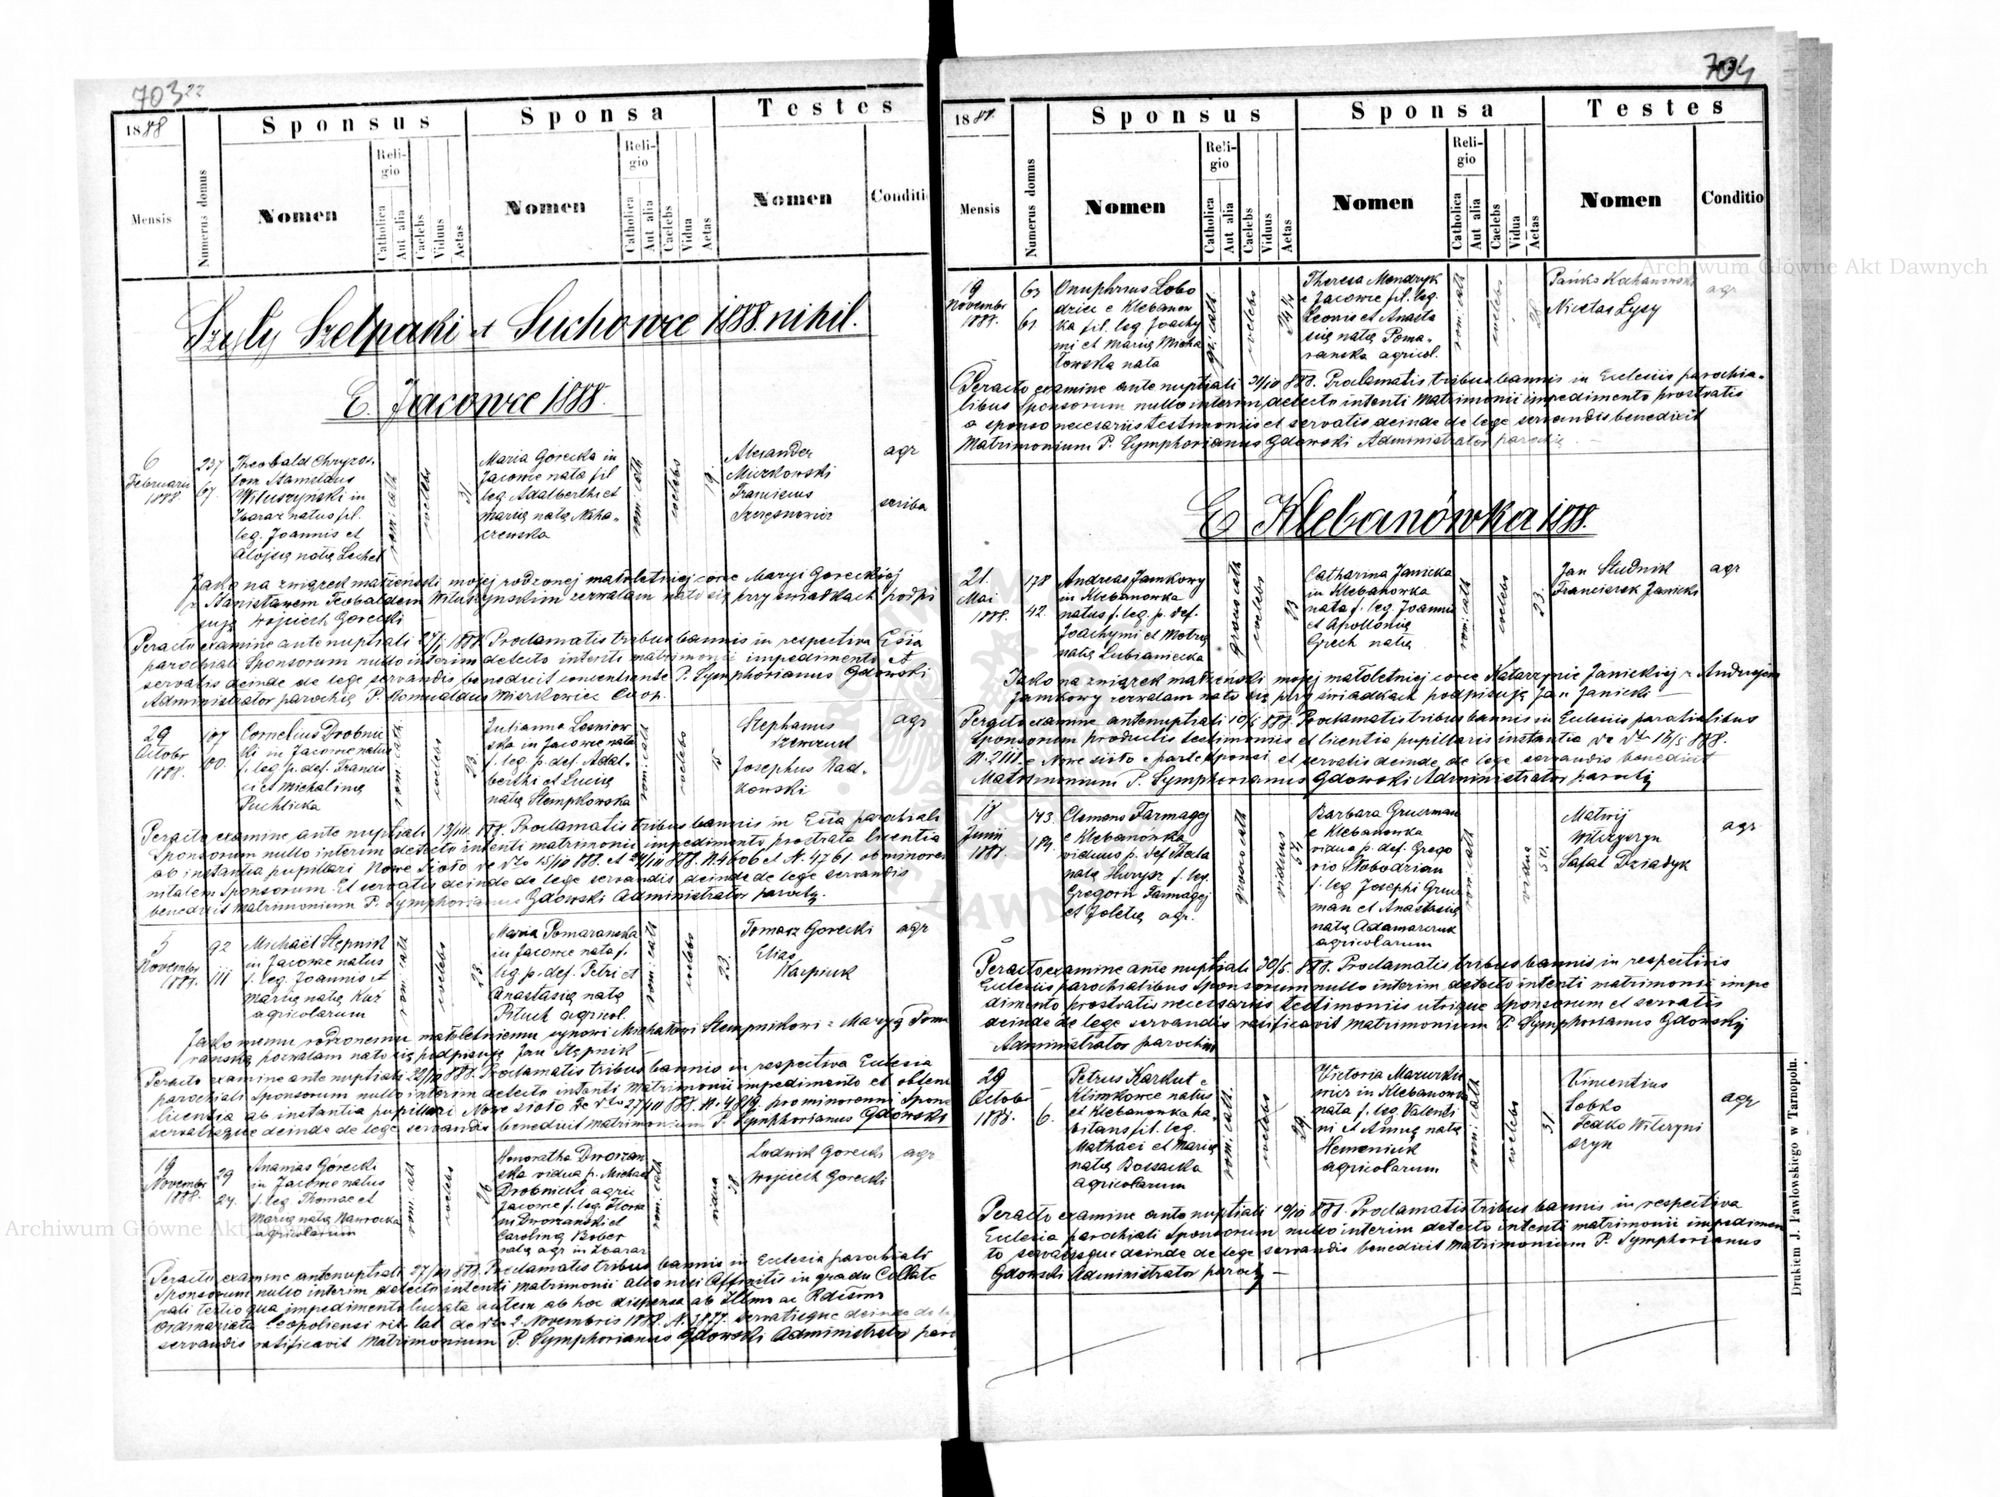 703 22
1888
Sponsus
Sponsa
Testes
Mensis
Numerus domus
Nomen
Religio
Catholica
Aut alia
Caelebs
Viduus
Aetas
Nomen
Religio
Catholica
Aut alia
Caelebs
Vidua
Aetas
Nomen
Conditio
Szyly Szelpaki et Suchowce 1888 nihil.
E. Jacowce 1888.
6 Februarii 1888
237
67
Theobald Chryzos-
tom Stanislaus
Wituszynski in
Zbaraż natus fil.
leg. Joannis et
Alojsią natą Lechel
rom: cath
coelebs
31
Maria Gorecka in
Jacowce nata fil
leg Adalberthi et
Marią natą Naha-
czewska
rom: cath
coelebs
19.
Alexander
Mierkowski
Franciscus
Szczęsnowicz
agr
scriba
Jako na związek małżeński mojej rodzonej małoletniej corce Maryi Goreckiej
z Stanisławem Teobaldem Wituszynskim zezwalam na to się przy świadkach podpi
suję Wojciech Gorecki
Peracto examine ante nuptiali 27/1 1888. Proclamatis tribus bannis in respectiva Ecsia
parochiali Sponsorum nullo interim detecto intenti matrimonii impedimento et
servatis deinde de lege servandis benedixit concentiante P. Symphorianus Gdowski
Administrator parochią P. Romualdus Mierkowicz Coop.
29
Octobr
1888.
107
100.
Cornelius Drobnic
ki in Jacowce natus
f. leg p. def. Francis
ci et Michaliną
Puchlicka
rom: cath
coelebs
23.
Julianna Lesniow
ska in Jacowce nata
f. leg p. def. Adal-
berthi et Lucią
natą Stempkowska
rom: cath
coelebs
Stephanus
Szewczuk
Josephus Rad-
kowski
agr
Peracto examine ante nuptiali 13/10. 888. Proclamatis tribus bannis in Ecsia parochiali
Sponsorum nullo interim detecto intenti matrimonii impedimento prostrata licentia
ab instantia pupillari Nowe Sioło de dto 15/10 888. et 24/10 888. N. 4606 et N. 4761. ob minoren
nitatem Sponsorum. Et servatis deinde de lege servandis deinde de lege servandis
benedixit Matrimonium P. Symphorianus Gdowski Administrator parochą.
5
Novembr
1888.
92
111
Michaël Stępnik
in Jacowce natus
f. leg. Joannis et
Marią natą Kuź
agricolarum
rom: cath
coelebs
23.
Maria Pomaranska
in Jacowce nata f.
leg p. def. Petri et
Anastasią natą
Pituch agricol.
rom: cath
coelebs
23.
Tomasz Gorecki
Elias
Karpiuk
agr
Jako memu rodzonemu małoletniemu synowi Michałowi Stempnikowi z Maryą Poma
ranską pozwalam na to się podpisuję Jan Stępnik
Peracto examine ante nuptiali 22/10 888. Proclamatis tribus bannis in respectiva Eclesia
parochiali Sponsorum nullo interim detecto intenti Matrimonii impedimento et obtent
licentia ab instantia pupillari Nowe Sioło de dto 27/10 888. N. 4819. pro minorenni Spons
servatisque deinde de lege servandis benedixit matrimonium P. Symphorianus Gdowski
19
Novembr
1888.
29
27.
Ananias Górecki
in Jacowce natus
f. leg Thomae et
Marią natą Nawrocka
agricolarum
rom: cath
coelebs
26
Honoratha Dworzań-
ska vidua p. Michael
Drobnicki agric
Jacowce f. leg. Floria
ni Dworzanski et
Caroliną Bober
natą agr in Zbaraz
rom: cath
vidua
38
Ludwik Gorecki
Wojciech Gorecki
agr
Peracto examine antenuptiali 27/10 888. Proclamatis tribus bannis in Eclesia parochiali
Sponsorum nullo interim detecto intenti matrimonii alio nisi Affinitis in gradu Collate
rali tertio qua impedimentu lucrata autem ab hoc dispensa ab Illmo ac Rdissmo
Ordinariata Leopoliensi rit. lat. de dto 2. Novembris 1888. N. 3877. servatisque deinde de le
servandis ratificavit Matrimonium P. Symphorianus Gdowski Administrator paro
704
1888.
Sponsus
Sponsa
Testes
Mensis
Numerus domus
Nomen
Religio
Catholica
Aut alia
Caelebs
Viduus
Aetas
Nomen
Religio
Catholica
Aut alia
Caelebs
Vidua
Aetas
Nomen
Conditio
19
Novembr
1888.
63
61.
Onuphrius Lobo
dziec e Klebanow
ka fil. leg Joachy
mi et Marią Micha
łowska nata
gr: cath.
coelebs
24 1/4
Theresa Mendryk
e Jacowce fil. leg.
Leonis et Anasta
sią natą Poma-
ranska agricol.
rom: cath
coelebs
28.
Pańko Kochanowski
Nicolas Łysy
agr
Peracto examine ante nuptiali 31/10 888. Proclamatis tribus bannis in Eclesiis parochia-
libus Sponsorum nullo interim detecto intenti Matrimonii impedimento prostratis
a sponso necesariis testimoniis et servatis deinde de lege servandis benedixit
Matrimonium P. Symphorianus Gdowski Administrator parochią. —
E Klebanówka 1888.
21.
Mai
1888.
178
42.
Andreas Jamkowy
in Klebanowka
natus f. leg. p. def.
Joachymi et Motrią
natą Lubianiecka
graeco cath
coelebs
23
Catharina Janicka
in Klebanowka
nata f. leg. Joannis
et Apollonią
Grech natą
rom: cath
coelebs
23.
Jan Studnik
Franciszek Janicki
agr
Jako na związek małżeński mojej małoletniej corce Katarzynie Janickiej z Andrzejem
Jamkowy zezwalam na to się przy świadkach podpisuję Jan Janicki —
Peracto examine antenuptiali 10/5 888. Proclamatis tribus bannis in Eclesiis parochialibus
Sponsorum productis testimoniis et licentia pupillaris instantia de dto 13/5 888.
N. 2111. e Nowe sioło e parte sponsi et servatis deinde de lege servandis benedixit
Matrimonium P. Symphorianus Gdowski Administrator parochą
18
Junii
1888.
143.
184.
Clemens Farmagej
e Klebanówka
viduus p. def Thecla
natą Hurysz f. leg.
Gregorii Farmagej
et Joletią agr.
graeco cath
viduus
54
Barbara Gruzman
e Klebanowka
vidua p. def. Grego
rio Słobodzian
f. leg Josephi Gruz
man et Anastasią
natą Adamarczuk
agricolarum
rom: cath
vidua
50.
Matwij
Witrzyszyn
Safat Dziadyk
agr
Peracto examine ante nuptiali 30/5. 888. Proclamatis tribus bannis in respectivis
Eclesiis parochialibus Sponsorum nullo interim detecto intenti matrimonii impe
dimento prostratis necessariis testimoniis utrique sponsorum et servatis
deinde de lege servandis ratificavit Matrimonium P. Symphorianus Gdowski
Administrator parochią
29
Octobr
1888.
6.
Petrus Karkut e
Klimkowce natus
et Klebanowka ha
bitans fil. leg.
Mathaei et Marią
natą Bossacka
agricolarum
rom: cath.
coelebs
29
Victoria Mazurkie
wicz in Klebanowka
nata f. leg. Valenti
ni et Anną natą
Hemeniuk
agricolarum
rom: cath
coelebs
31.
Vincentius
Sobko
Fedko Witrzyni
szyn
agr
Peracto examine ante nuptiali 19/10 888. Proclamatis tribus bannis in respectiva
Eclesia parochiali Sponsorum nullo interim detecto intenti matrimonii impedimen
to servatisque deinde de lege servandis benedixit Matrimonium P. Symphorianus
Gdowski Administrator parochą —
Drukiem J. Pawłowskiego w Tarnopolu.
Archiwum Główne Akt Dawnych
Archiwum Główne Akt Dawnych